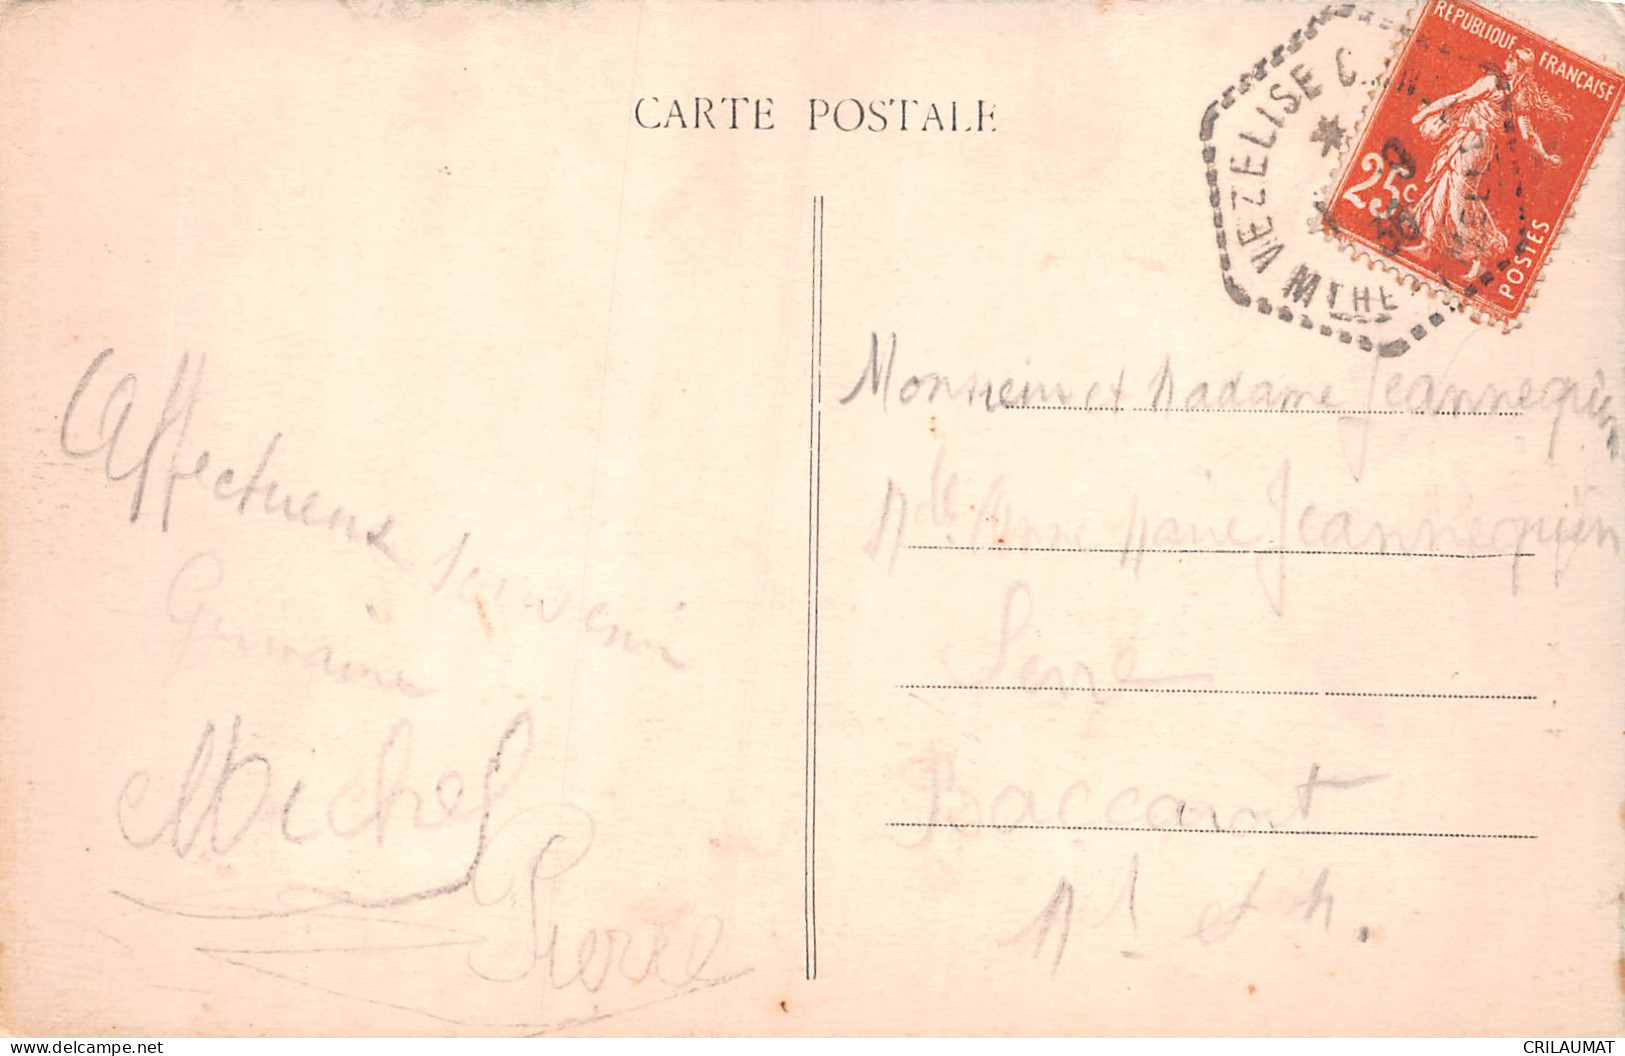 CARTE POSTALE
REPUBLIQUE FRANÇAISE
25c
POSTES
VEZELISE
MTHE
Affectueux Souvenir
Germaine
Michel
Pierre
Monsieur et Madame Jeannequin
Mlle Anne Marie Jeannequin
Baccarat
M et M.
delcampe.net
CRILAUMAT